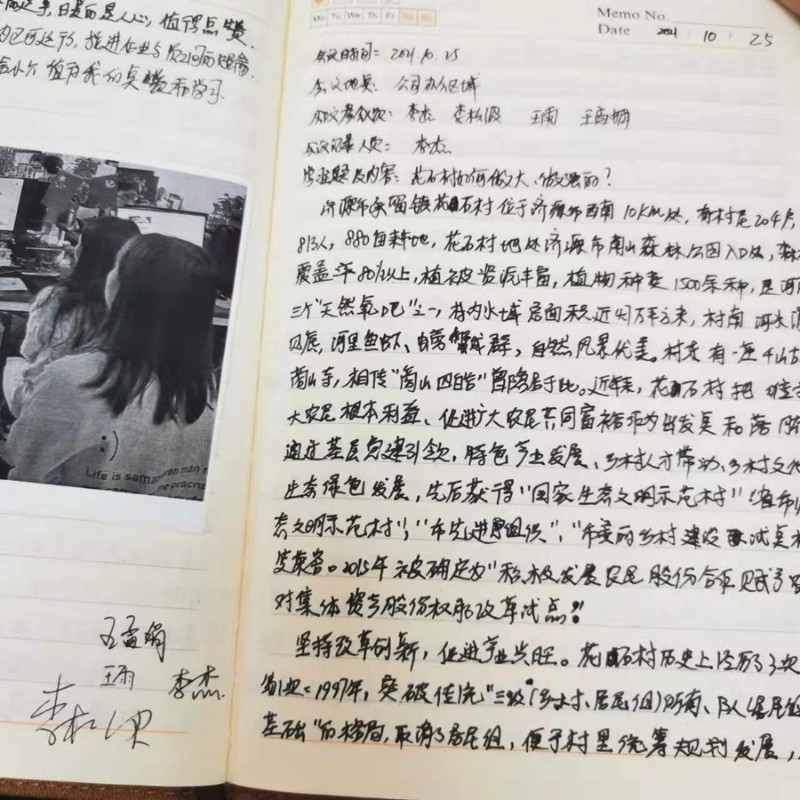 值得点赞.
值得我们点赞和学习
Life is
:)
王雨 李杰.
Mo Tu We Th Fr Sa Su
Memo No.
Date 2021 / 10 / 25
会议时间: 2021.10.25
会议地点: 公司办公区域
会议参会人: 李杰 李松波 王雨
会议记录人员: 李杰
花石村如何做大、做强的?
济源市承留镇花石村位于济源市西南10km处, 有村民204户,
813人, 880亩耕地, 花石村地处济源市南山森林公园入口处, 森林
覆盖率80%以上, 植被资源丰富, 植物种类1500余种, 是河南
三个"天然氧吧"之一, 村内水域总面积近4万平方米, 村南河水清澈
见底, 河里鱼虾、螃蟹成群, 自然风景优美。村支有一座千山古
商山寺, 相传"商山四皓"曾隐居于此。近年来, 花石村把维护
大农民根本利益、促进广大农民共同富裕作为出发点和落脚
通过基层党建引领, 特色产业发展、乡村人才带动、乡村文化
生态绿色发展, 先后获得"国家生态文明示范村" "省市
态文明示范村", "市先进基层组织", "市美丽乡村建设试点村
等荣誉。2015年被确定为"积极发展农民股份合作赋予农
对集体资产股份权能改革试点"!
坚持改革创新, 促进产业兴旺。花石村历史上经历了3次
1997年, 突破传统"三级(乡、村、居民组)所有、队(居民组
基础"的格局, 取消了居民组, 便于村里统筹规划发展,